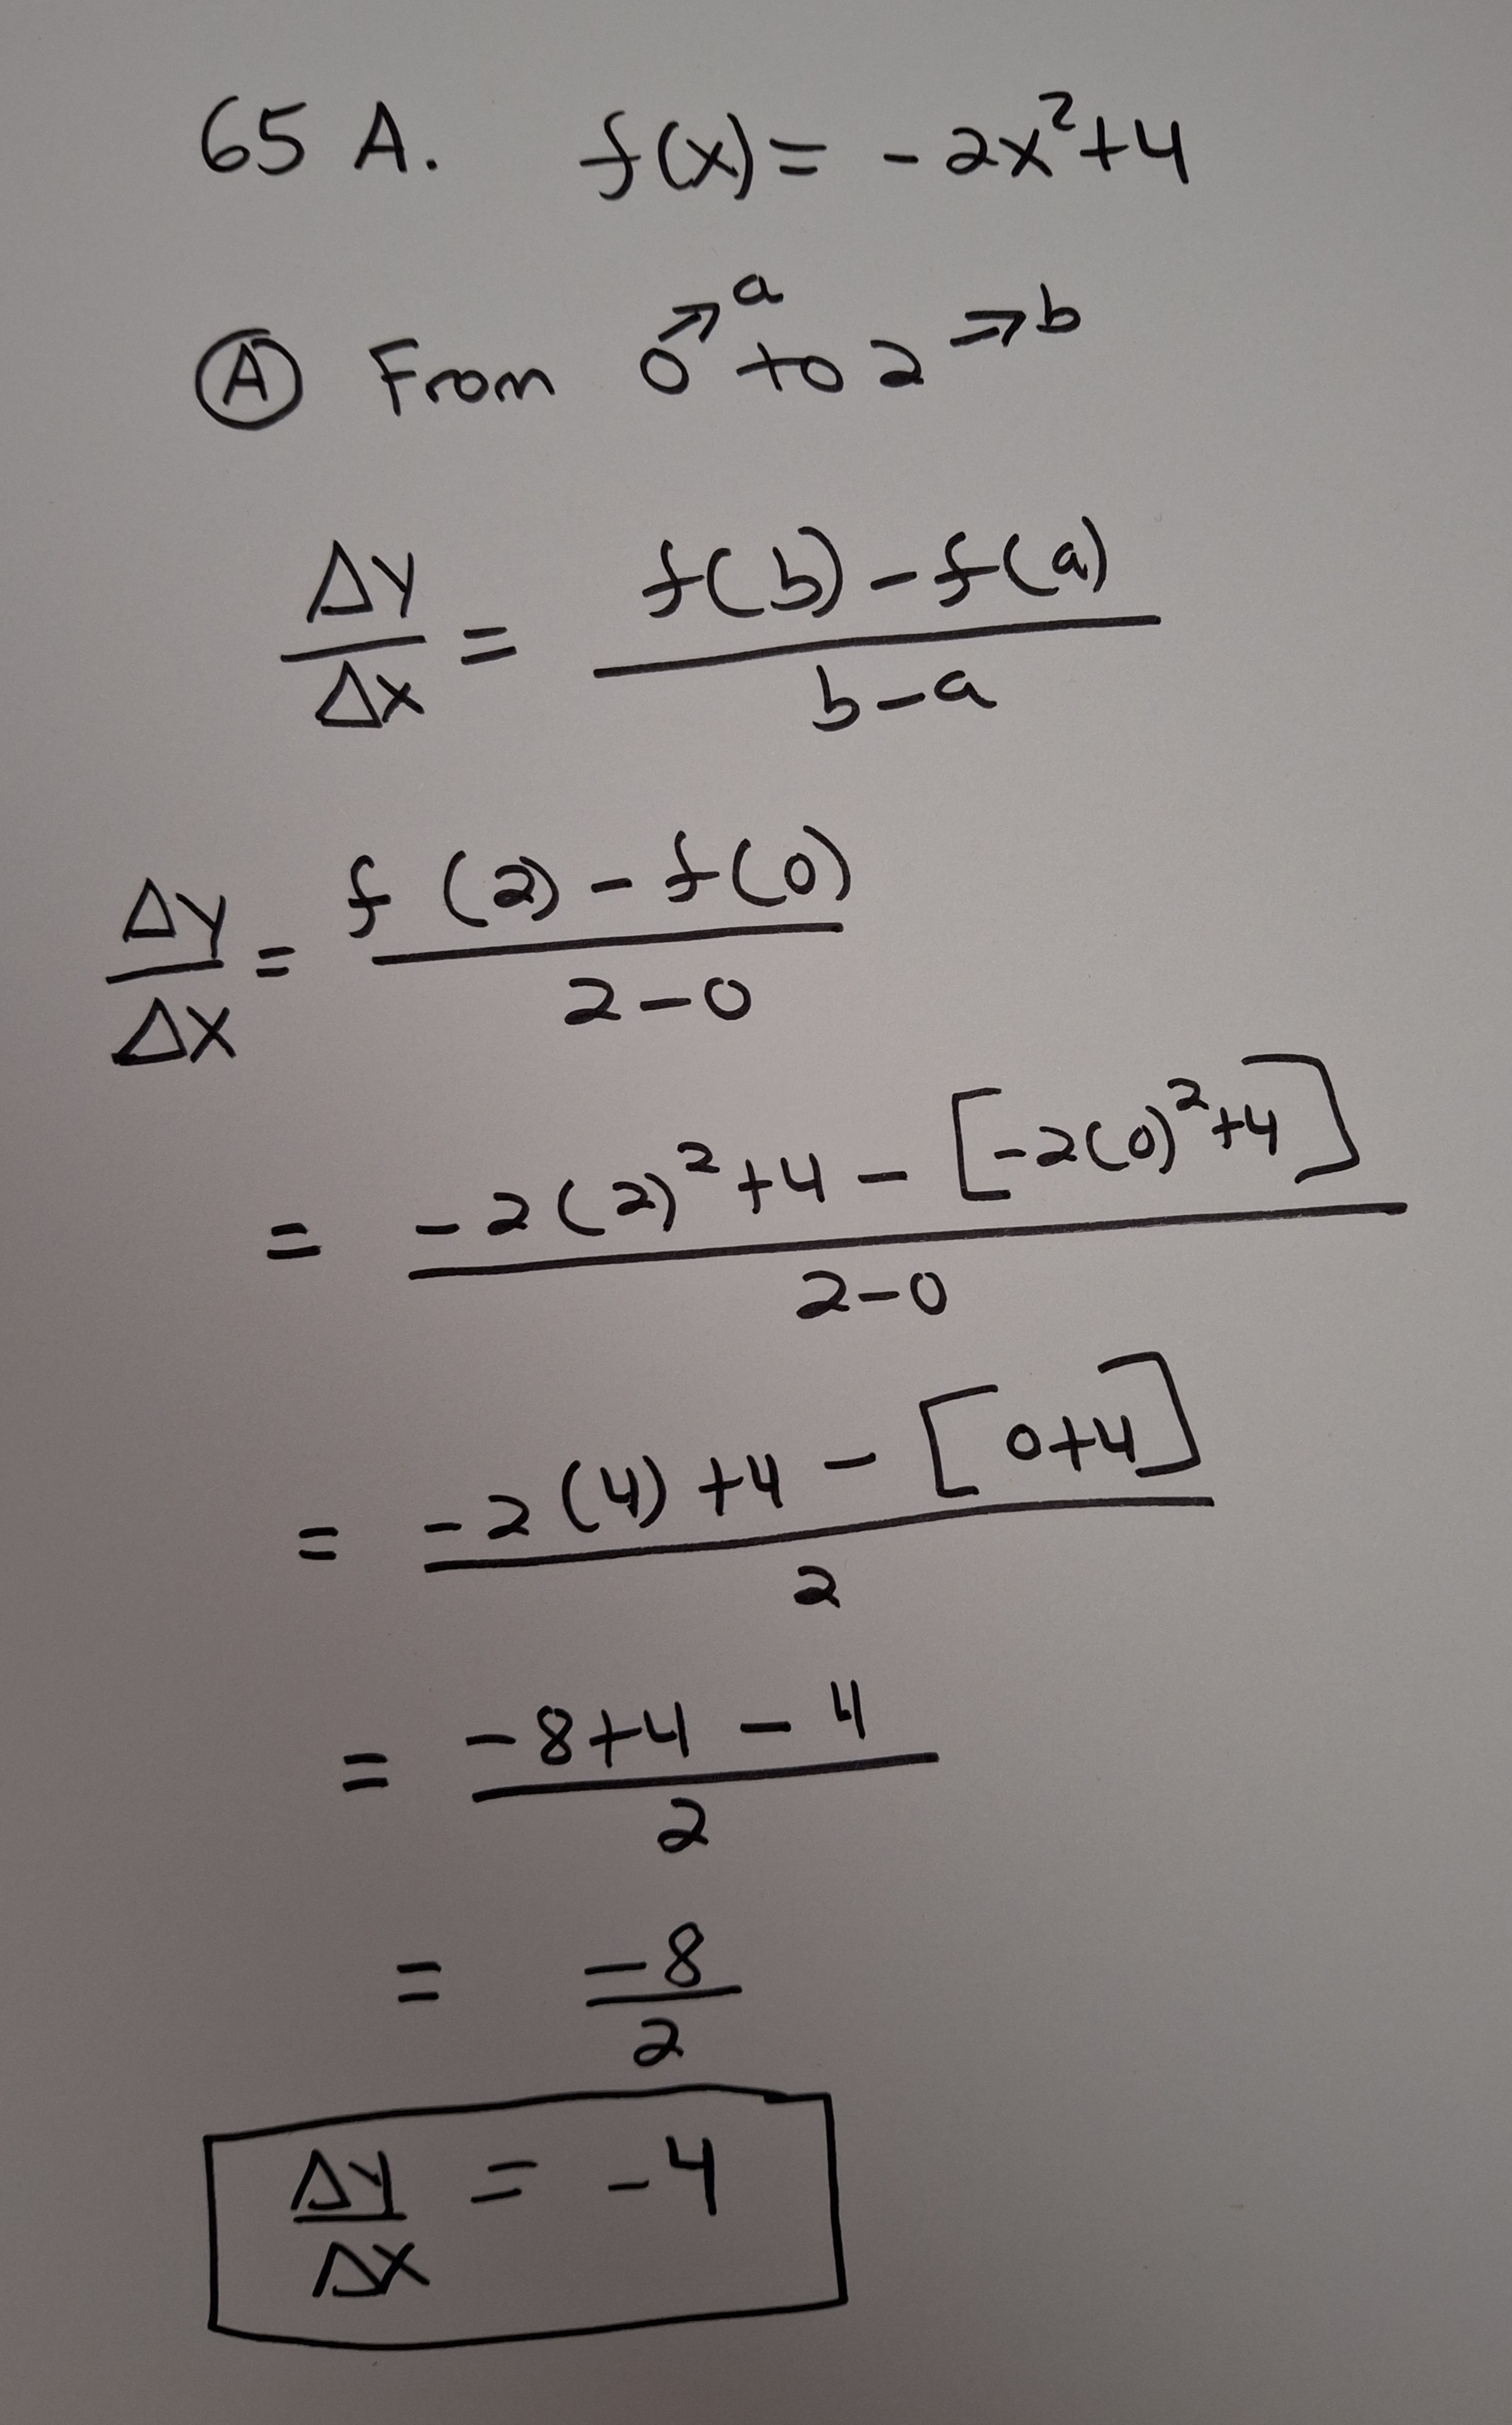 65 A. f(x) = -2x²+4
Ⓐ From 0 → a to 2 → b
Δy/Δx = (f(b) - f(a))/(b-a)
Δy/Δx = (f(2) - f(0))/(2-0)
= (-2(2)²+4 - [-2(0)²+4])/(2-0)
= (-2(4)+4 - [0+4])/2
= (-8+4-4)/2
= -8/2
Δy/Δx = -4